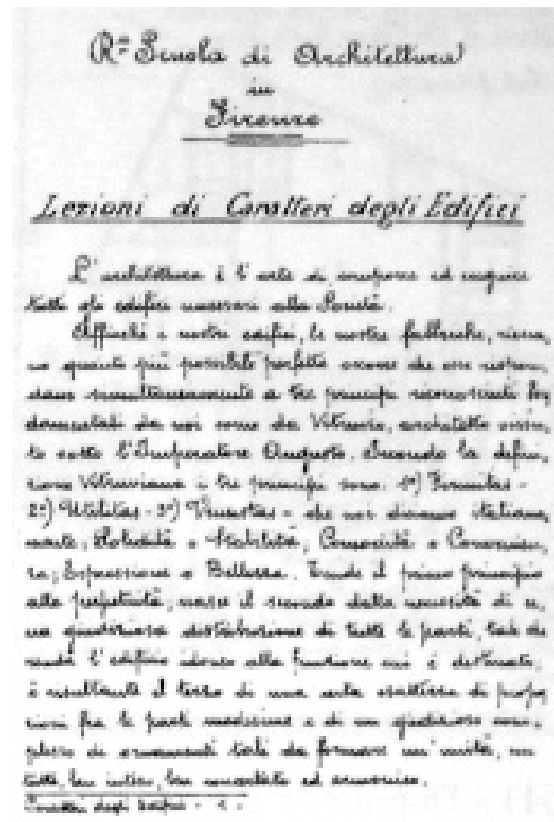 Rª Scuola di Architettura
in
Firenze
Lezioni di Caratteri degli Edifici
L'architettura è l'arte di comporre ed eseguire
tutti gli edifici necessari alla Società.
Affinchè i nostri edifici, le nostre fabbriche, riesca,
no quanto più possibile perfette occorre che esse rispon,
dano simultaneamente a tre principi riconosciuti fon
damentali da noi come da Vitruvio, architetto vissu,
to sotto l'Imperatore Augusto. Secondo la defini,
zione Vitruviana i tre principi sono: 1º) Firmitas -
2º) Utilitas - 3º) Venustas - che noi diciamo italiana,
mente; Solidità o Stabilità; Comodità o Convenien,
za; Espressione o Bellezza. Tende il primo principio
alla perpetuità; nasce il secondo dalla necessità di
una giudiziosa distribuzione di tutte le parti, tale da
renda l'edificio idoneo alla funzione cui è destinato;
è risultante il terzo di una certa esattezza di propor
zioni fra le parti medesime e di un giudizioso com,
plesso di ornamenti tale da formare un'unità, un
tutto, ben inteso, ben ed armonico.
Caratteri degli Edifici - 1 -